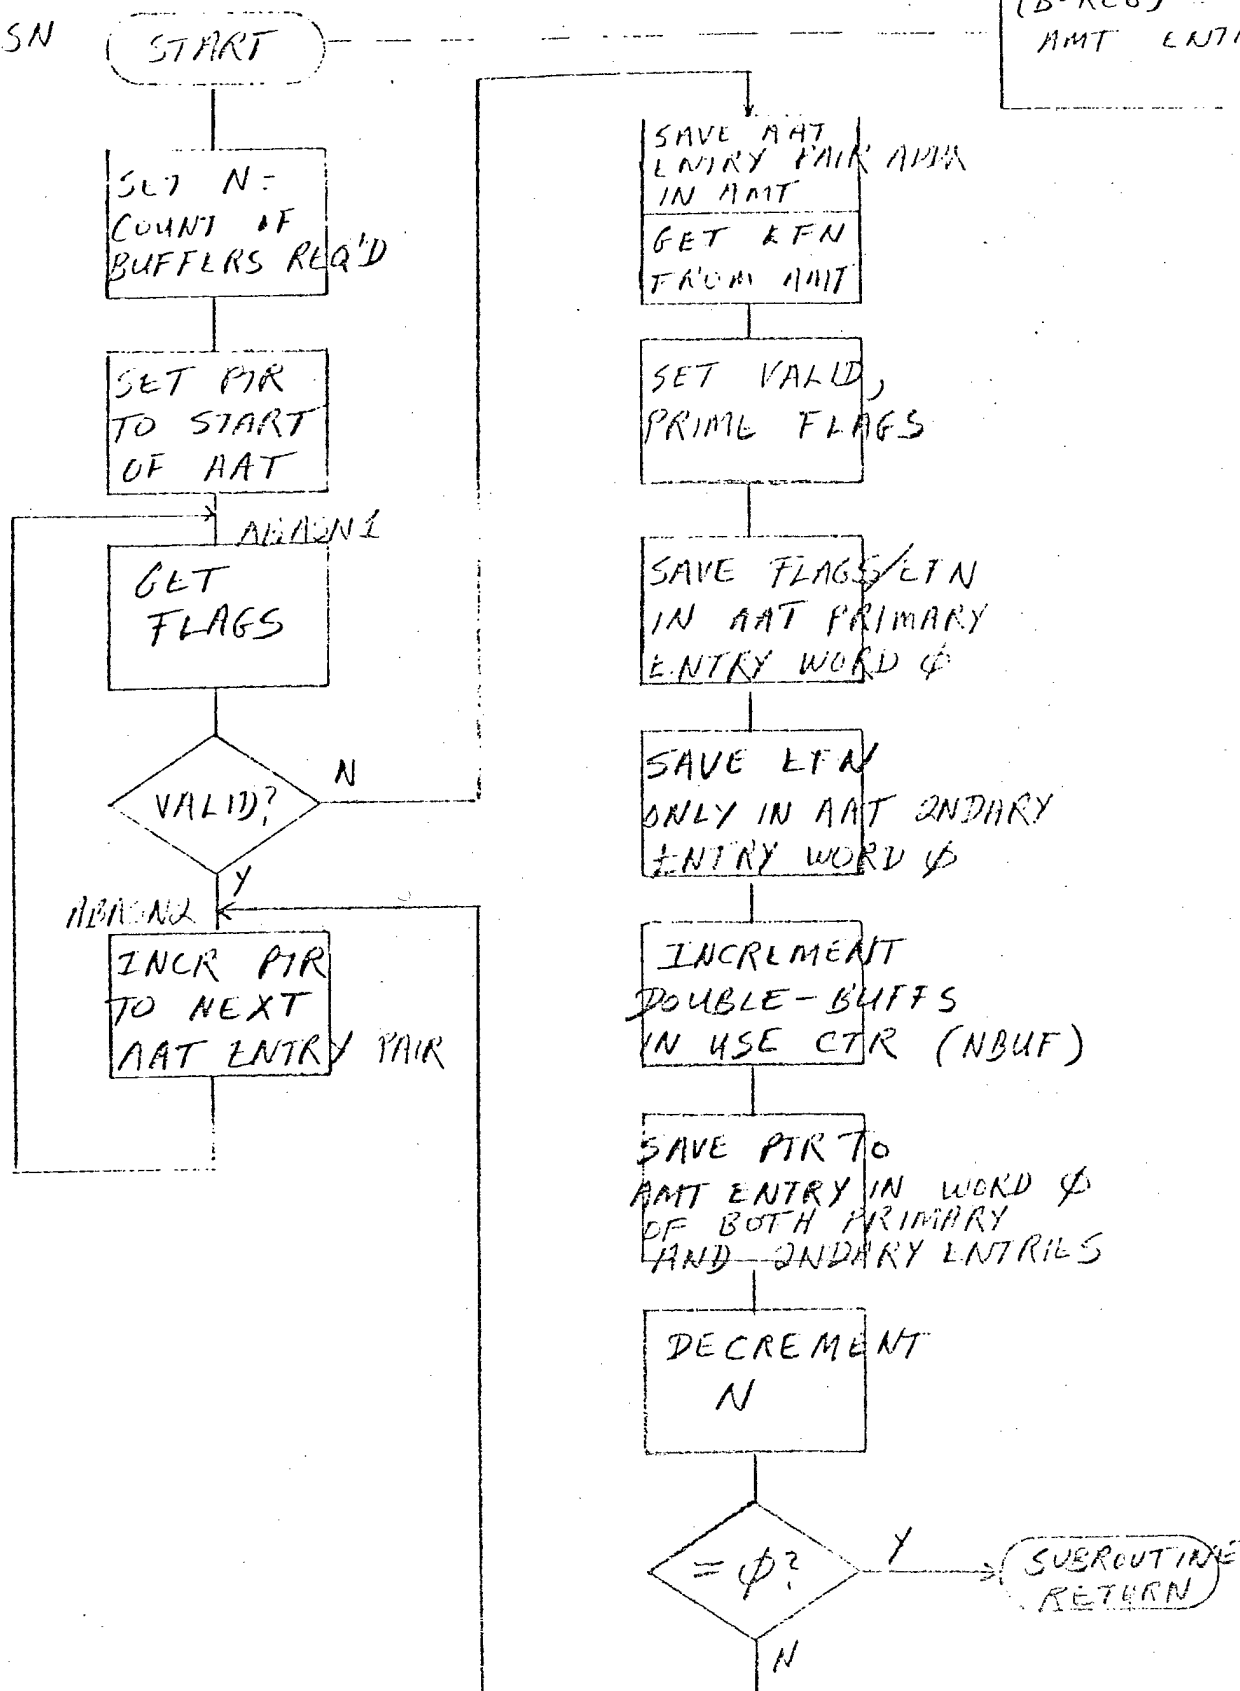 SN
START
(B-REG)
AMT ENT
SET N =
COUNT OF
BUFFERS REQ'D
SET PTR
TO START
OF AAT
ABASN1
GET
FLAGS
VALID?
N
Y
ABASN2
INCR PTR
TO NEXT
AAT ENTRY PAIR
SAVE AAT
ENTRY PAIR ADDR
IN AMT
GET LFN
FROM AMT
SET VALID,
PRIME FLAGS
SAVE FLAGS/LFN
IN AAT PRIMARY
ENTRY WORD Ø
SAVE LFN
ONLY IN AAT 2NDARY
ENTRY WORD Ø
INCREMENT
DOUBLE-BUFFS
IN USE CTR (NBUF)
SAVE PTR TO
AMT ENTRY IN WORD Ø
OF BOTH PRIMARY
AND 2NDARY ENTRIES
DECREMENT
N
= Ø?
Y
SUBROUTINE
RETURN
N